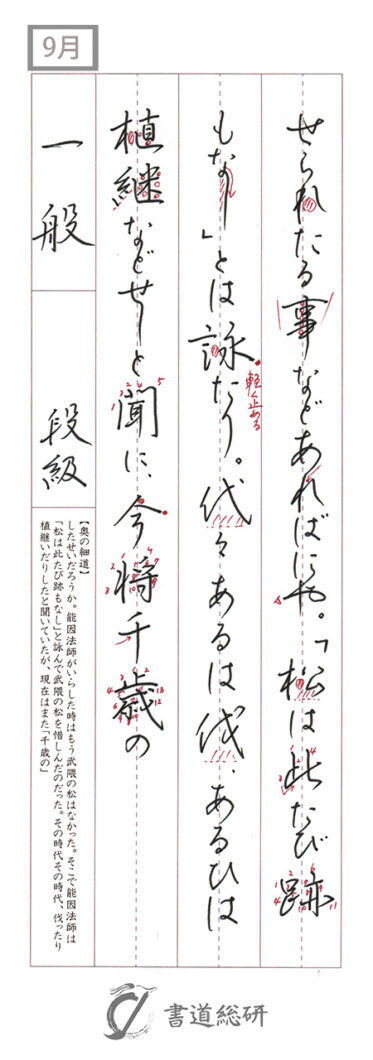 9月
せられたる事などあればにや。「松は此たび跡
もなし」とは詠たり。代々あるは伐、あるひは
植継などせしと聞に、今将千歳の
軽く止める
一般
段級
【奥の細道】
したせいだろうか。能因法師がいらした時はもう武隈の松はなかった。そこで能因法師は
「松は此たび跡もなし」と詠んで武隈の松を惜しんだのだった。その時代その時代、伐ったり
植継いだりしたと聞いていたが、現在はまた「千歳の」
書道総研